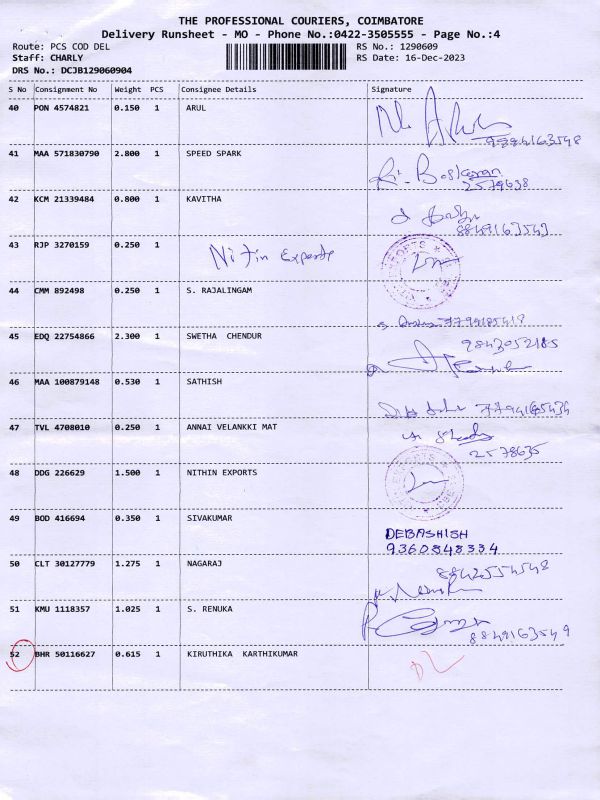 THE PROFESSIONAL COURIERS, COIMBATORE
Delivery Runsheet - MO - Phone No.:0422-3505555 - Page No.:4
Route: PCS COD DEL RS No.: 1290609
Staff: CHARLY RS Date: 16-Dec-2023
DRS No.: DCJB129060904
S No Consignment No Weight PCS Consignee Details Signature
40 PON 4574821 0.150 1 ARUL
41 MAA 571830790 2.800 1 SPEED SPARK
2579638
42 KCM 21339484 0.800 1 KAVITHA
43 RJP 3270159 0.250 1 Nitin Exports
44 CMM 892498 0.250 1 S. RAJALINGAM
45 EDQ 22754866 2.300 1 SWETHA CHENDUR
9843052185
46 MAA 100879148 0.530 1 SATHISH
47 TVL 4708010 0.250 1 ANNAI VELANKKI MAT
2578635
48 DDG 226629 1.500 1 NITHIN EXPORTS
49 BOD 416694 0.350 1 SIVAKUMAR
DEBASHISH
9360848334
50 CLT 30127779 1.275 1 NAGARAJ
51 KMU 1118357 1.025 1 S. RENUKA
8849163549
52 BHR 50116627 0.615 1 KIRUTHIKA KARTHIKUMAR
DL